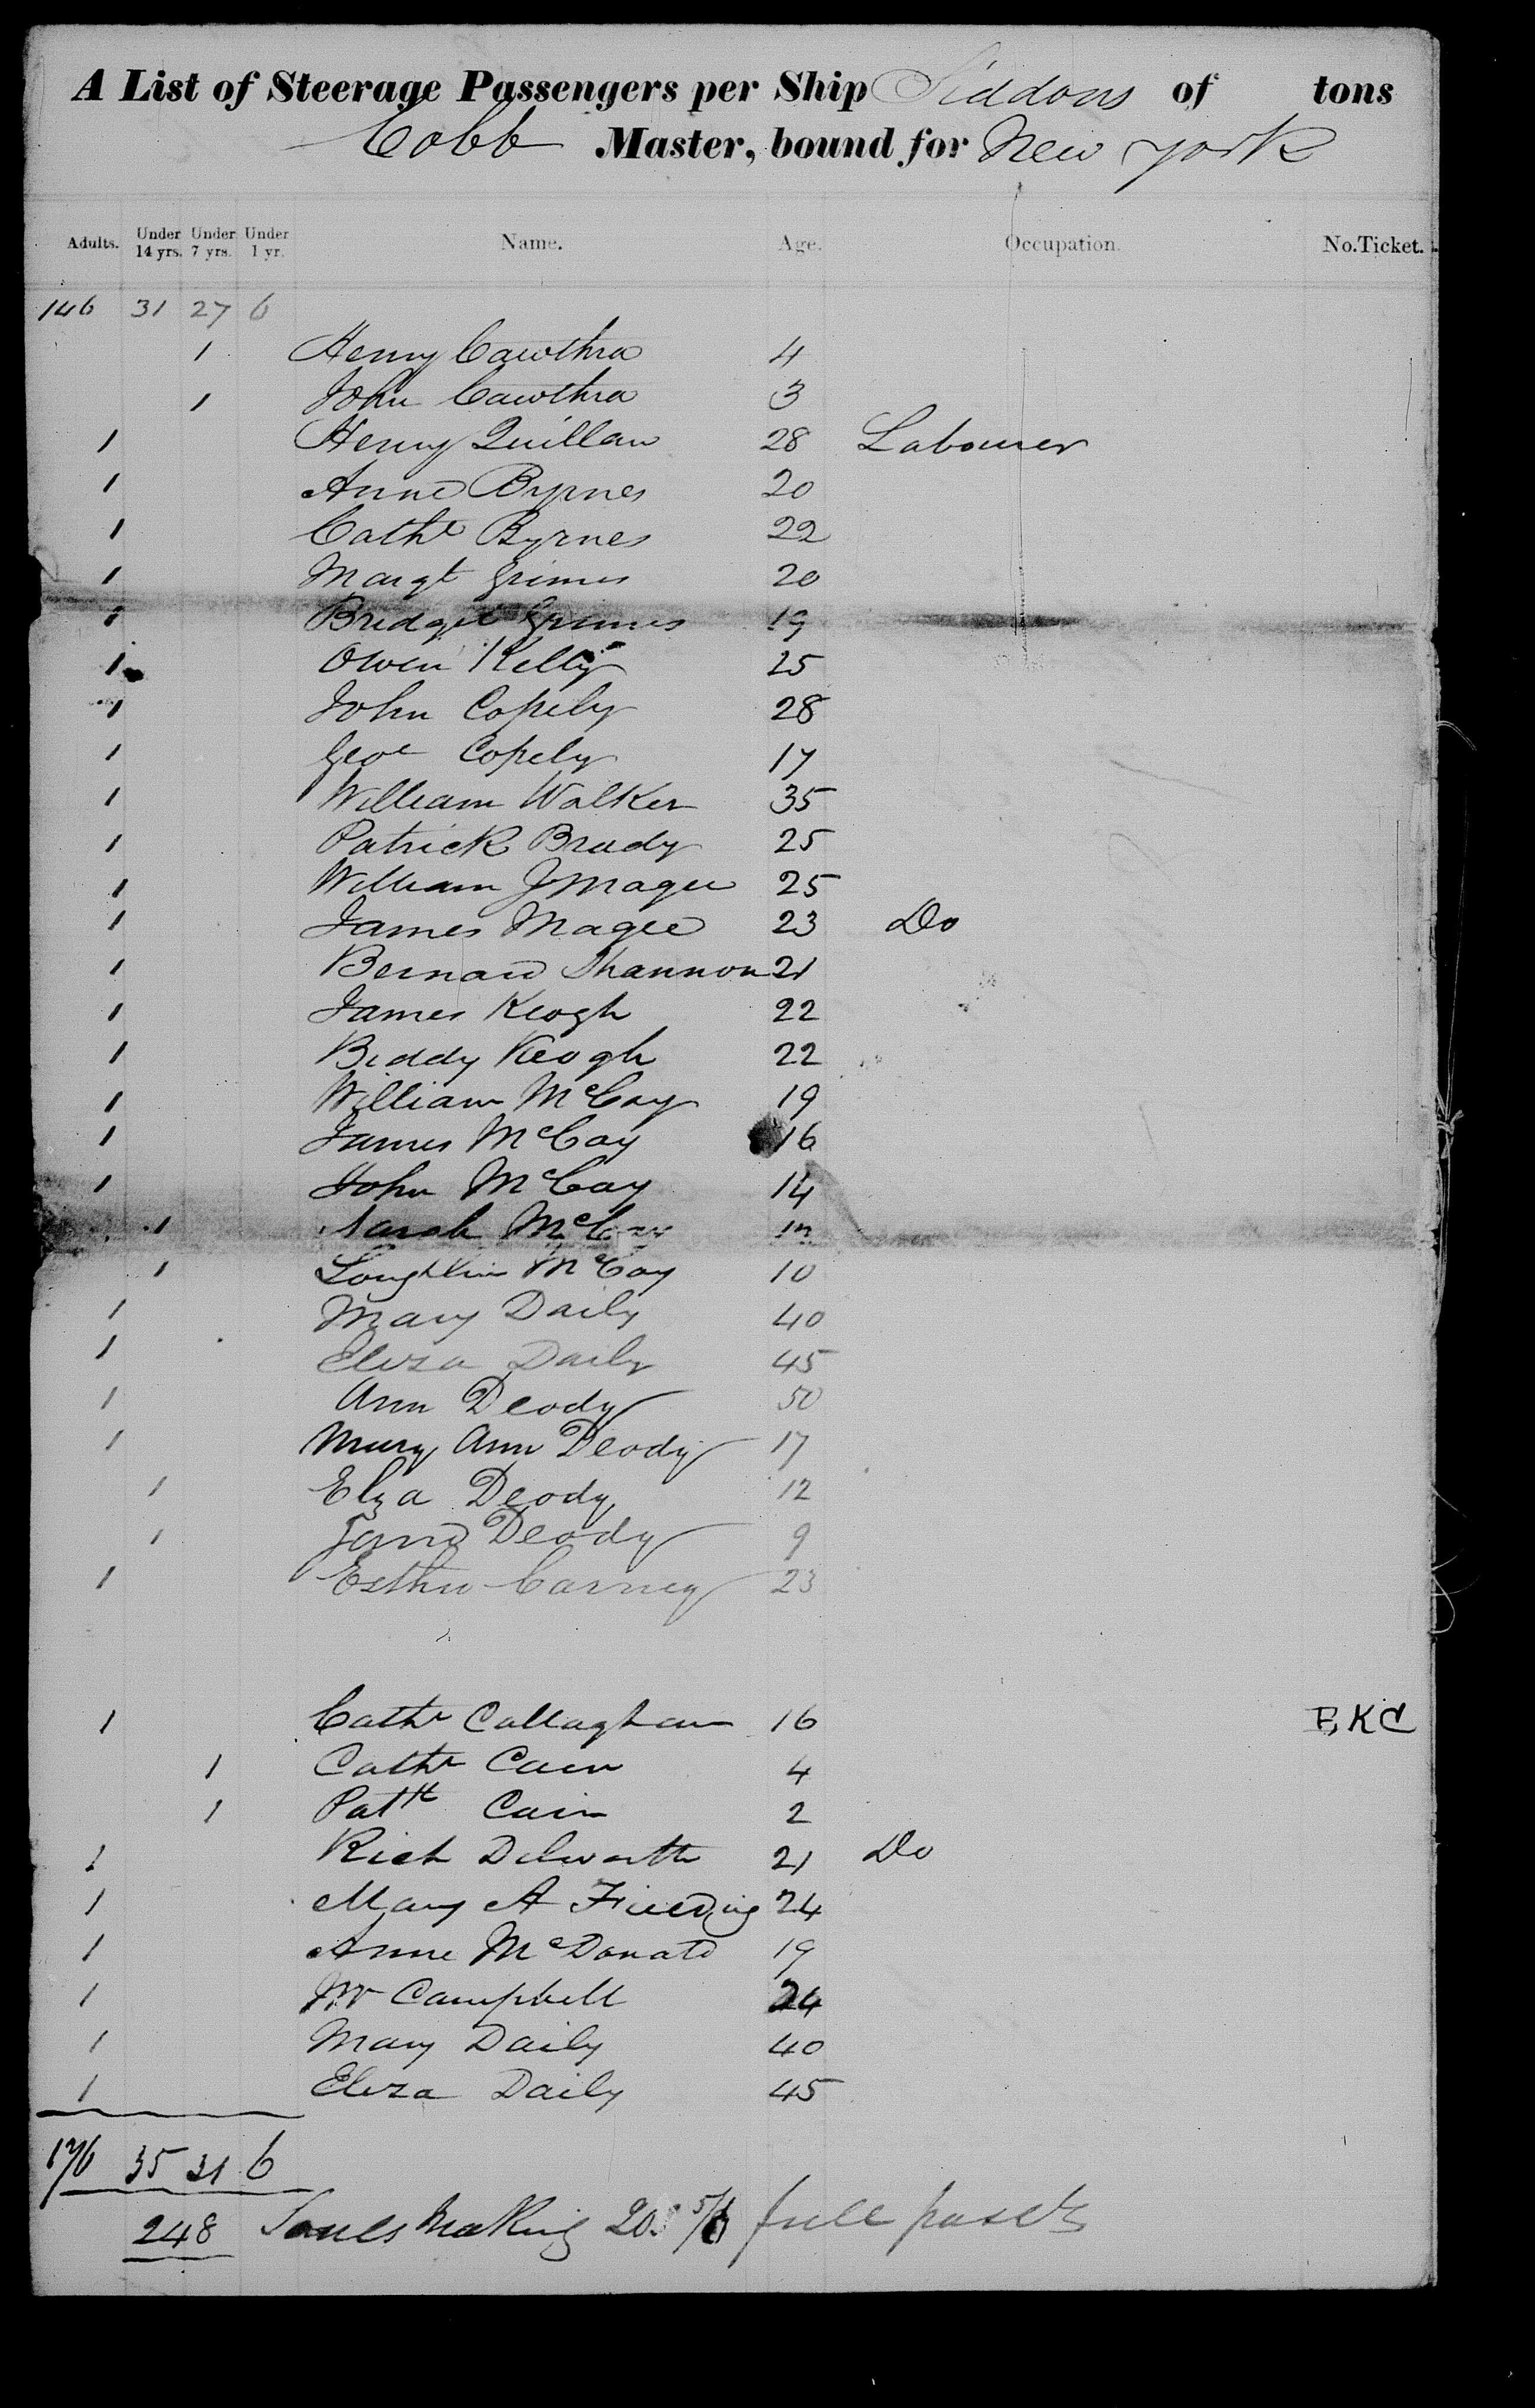 A List of Steerage Passengers per Ship Siddons of tons
Cobb Master, bound for New York
Adults. Under 14 yrs. Under 7 yrs. Under 1 yr. Name. Age. Occupation. No. Ticket.
146 31 27 6
1 Henry Cawthra 4
1 John Cawthra 3
1 Henry Quillan 28 Labourer
1 Anne Byrnes 20
1 Cathe Byrnes 22
1 Margt Grimes 20
1 Bridget Grimes 19
1 Owen Kelly 25
1 John Copely 28
1 Geoe Copely 17
1 William Walker 35
1 Patrick Brady 25
1 William J Magee 25
1 James Magee 23 Do
1 Bernard Shannon 21
1 James Keogh 22
1 Biddy Keogh 22
1 William McCoy 19
1 James McCoy 16
1 John McCoy 14
1 Sarah McCoy
1 Loughlin McCoy 10
1 Mary Daily 40
1 Eliza Daily 45
1 Ann Deody 50
1 Mary Ann Deody 17
1 Elza Deody 12
1 Jane Deody 9
1 Esther Carney 23
1 Cathe Callaghan 16 EKC
1 Cathe Cain 4
1 Patk Cain 2
1 Rich Dilworth 21 Do
1 Mary A 24
1 Anne McDonald 19
1 Campbell 24
1 Mary Daily 40
1 Eliza Daily 45
176 35 31 6
248 Souls Making 5/6 full